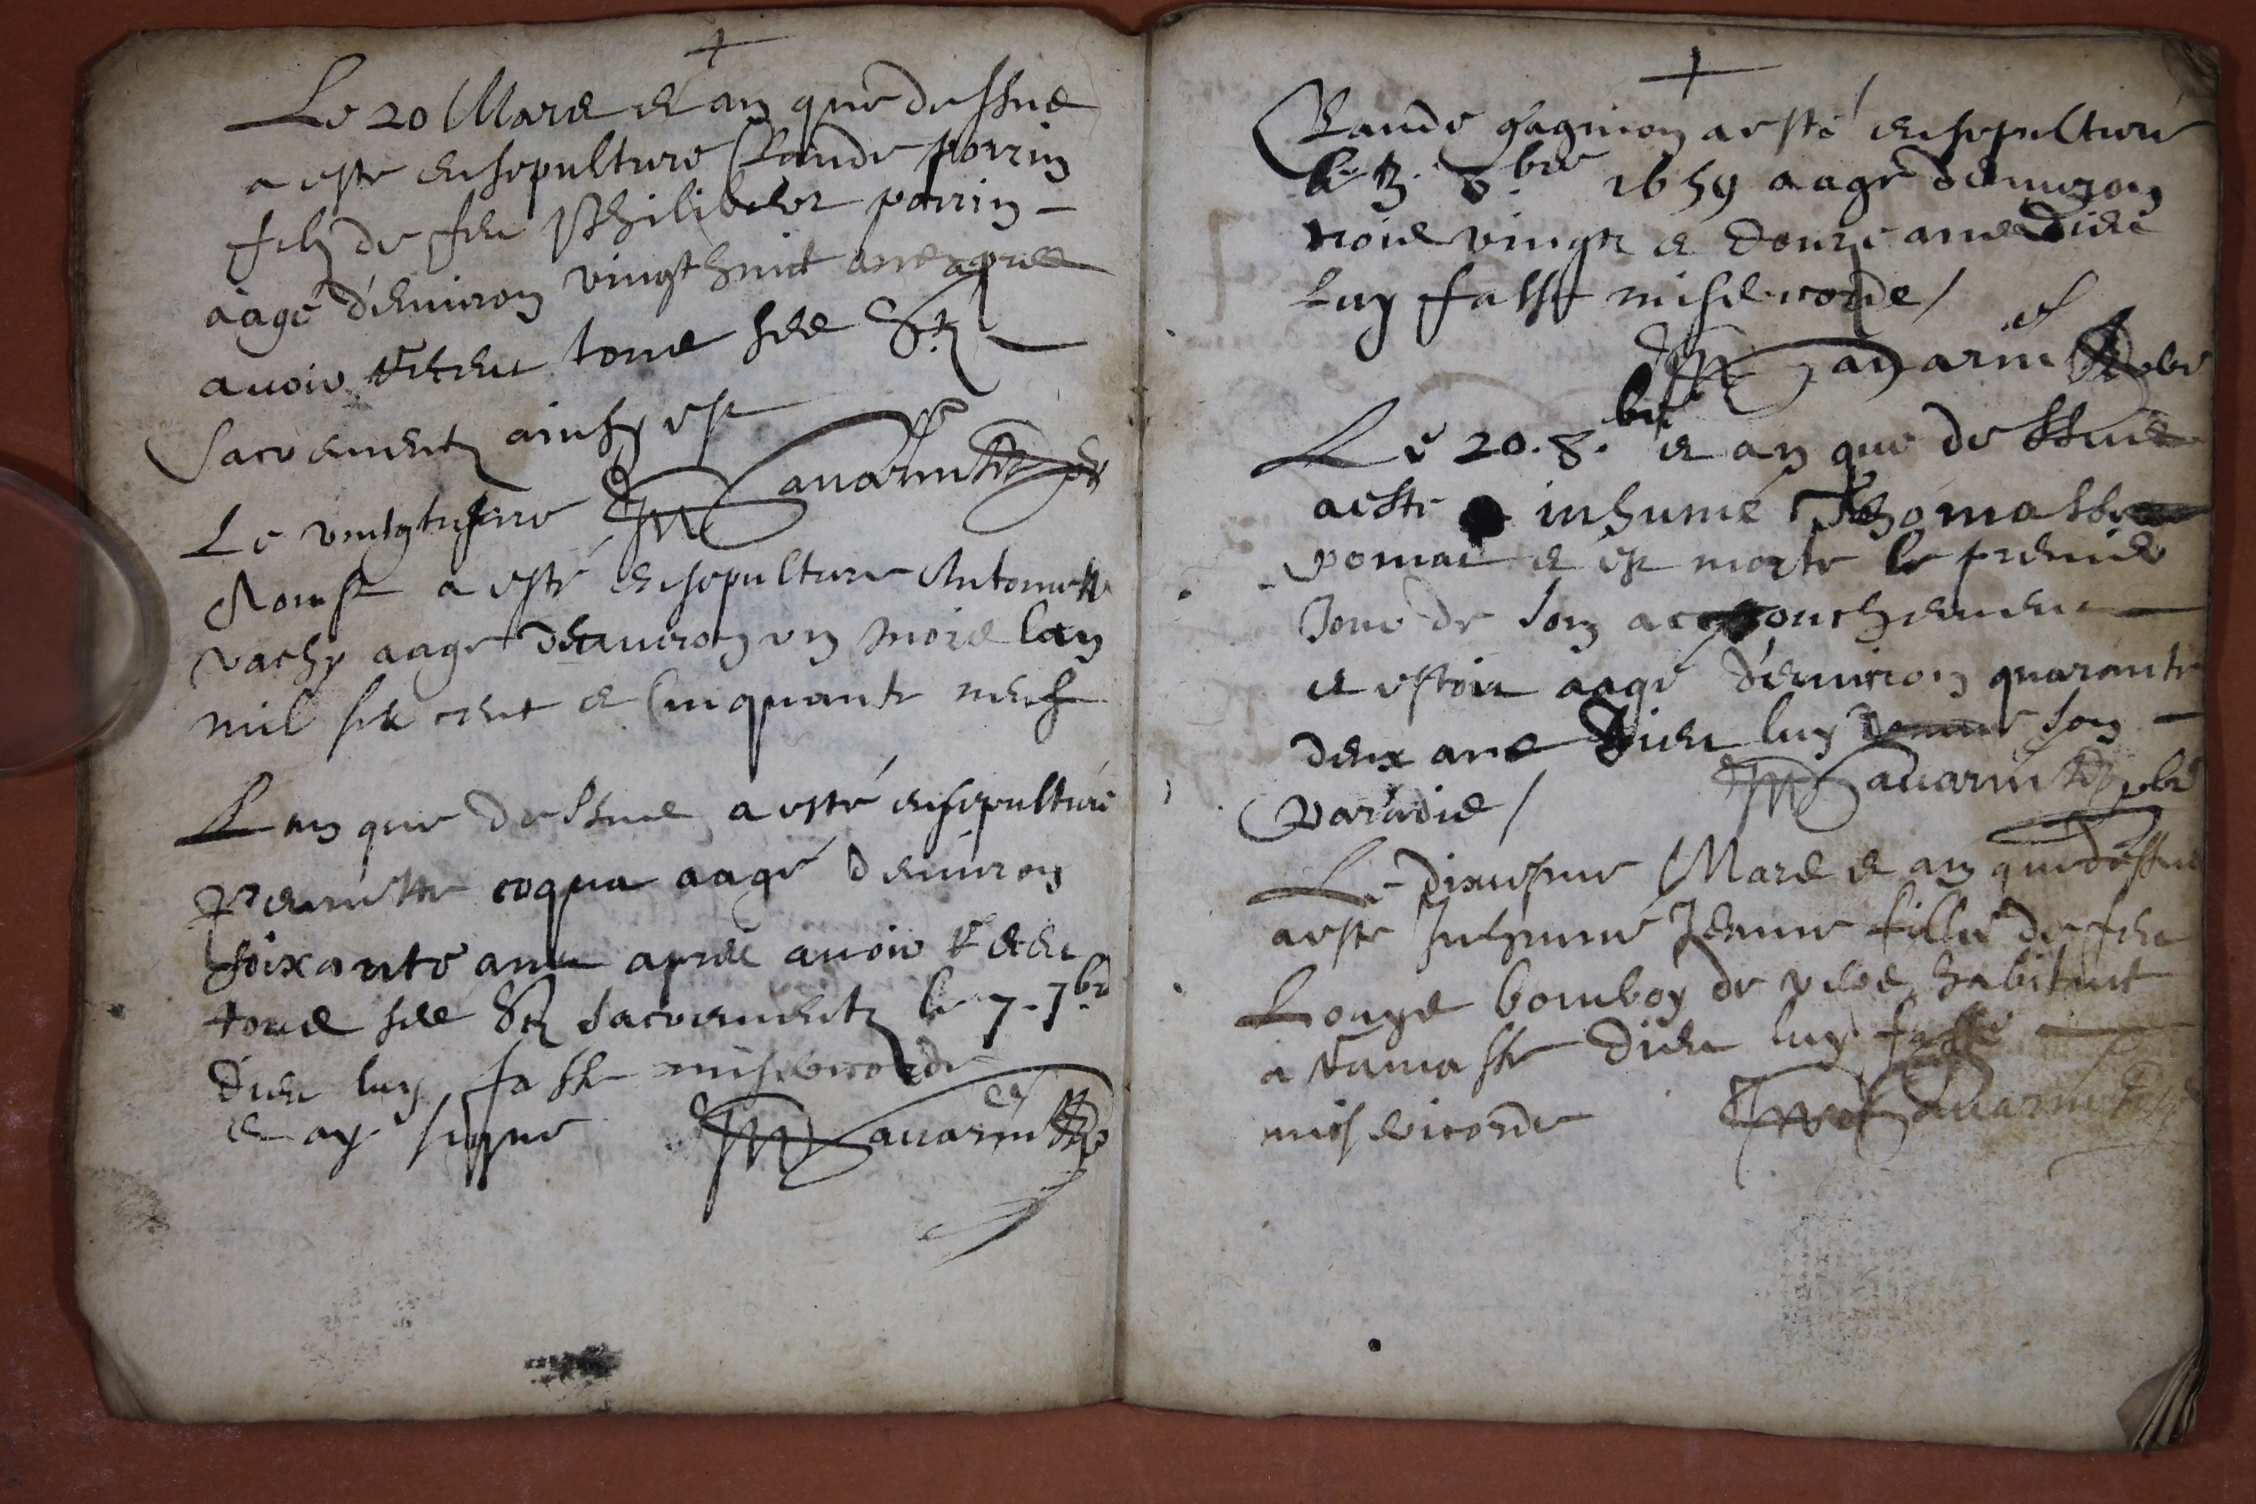 Le 20 Mars et an que dessus
a este ensepulture Claude perrin
filz de feu Philibert perrin
aagé d'environ vingt huict ans apres
avoir receu tous ses Stz
Sacrements ainsy est
Le vingtiesme
Aoust a esté ensepulture Antoinette
vachy aagé d'environ un mois lan
mil six cent et Cinquante neuf
L an que dessus a esté ensepulturé
Pernette coqua aagé d'environ
soixante ans apres avoir receu
tous ses Stz Sacrements le 7. 7bre
Dieu luy fasse misericorde
et ay signe
Claude gagnion a esté ensepulturé
le 3. 8.bre 1659 aagé d'environ
trois vingtz et douze ans Dieu
luy fasse misericorde
Le 20. 8.bre et an que dessus
a este inhumé Thomasse
et est morte le premier
Jour de son accouchement
et estoit aagé d'environ quarante
deux ans Dieu luy donne son
Paradis
Le dixiesme Mars et an que dessus
a este Inhumé Jeanne fille de feu
Louys bomboy de habitant
a Dieu luy fasse
misericorde